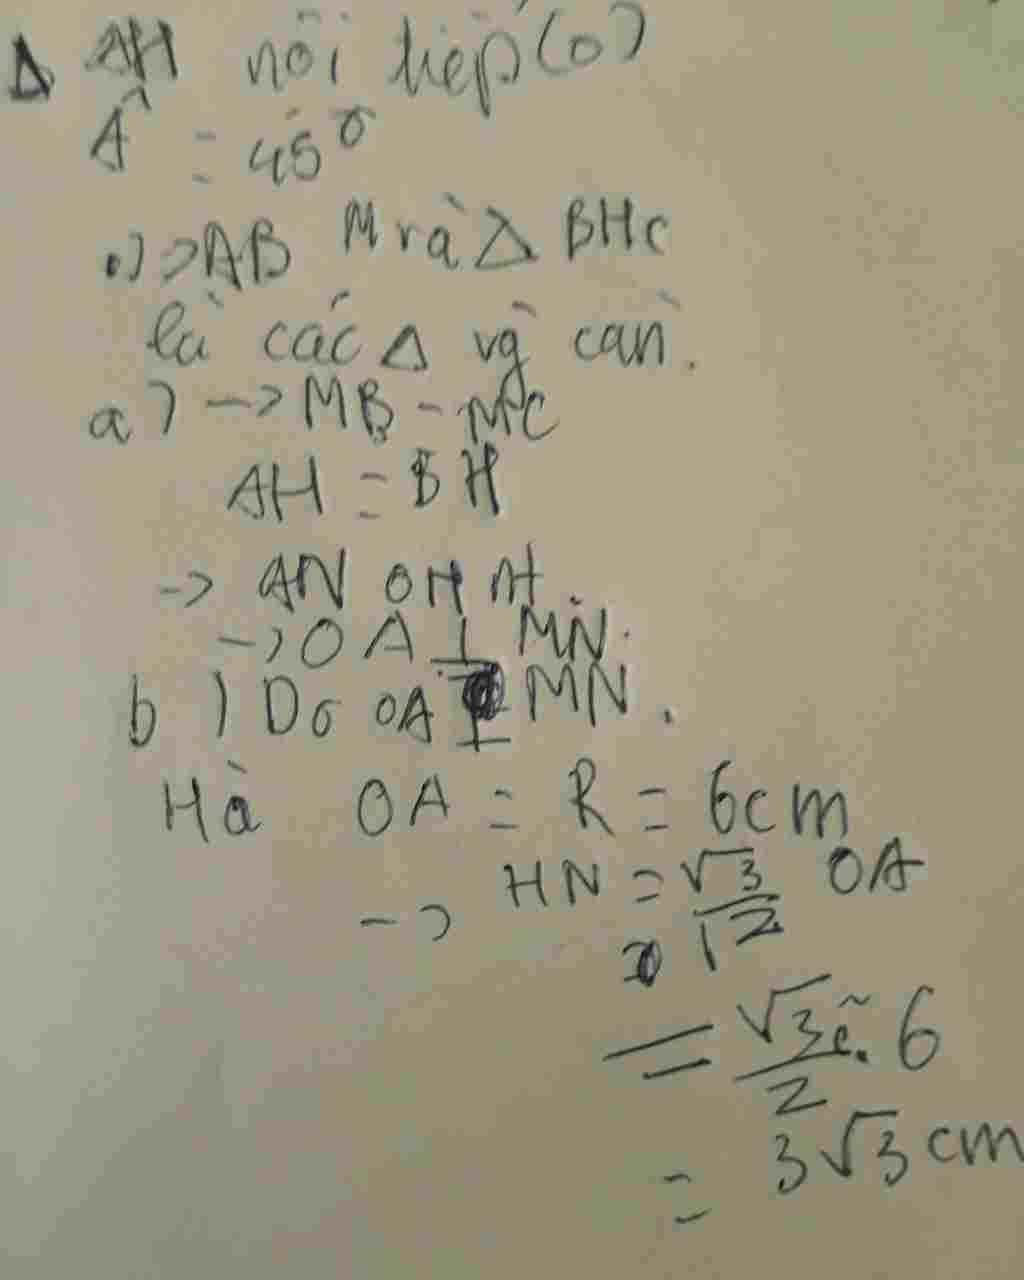 Δ AH nội tiếp (O)
Â = 45°
•) => AB M và Δ BHC
là các Δ vg cân.
a) -> MB - MC
AH = BH
-> AN OH nt.
-> OA ⊥ MN.
b) Do OA ⊥ MN.
Hà OA = R = 6cm
-> HN = √3/2 OA
= √3/2 . 6
= 3√3 cm